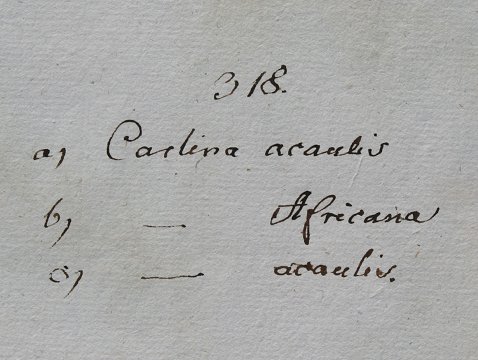 318.
a, Carlina acaulis
b, — Africana
c, — acaulis.